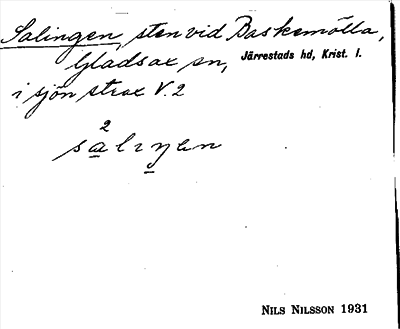 Salingen, sten vid Baskemölla,
Gladsax sn, Järrestads hd, Krist. l.
i sjön strax V. 2
2
salıŋen
NILS NILSSON 1931